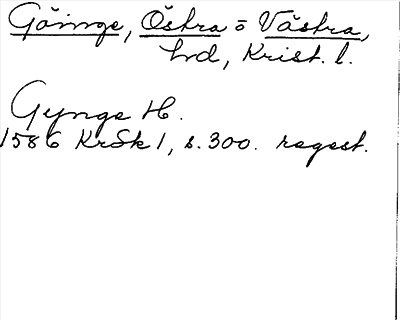 Göinge, Östra o Västra,
hd, Krist. l.
Gynge H.
1586 KrSk 1, s. 300. regest.